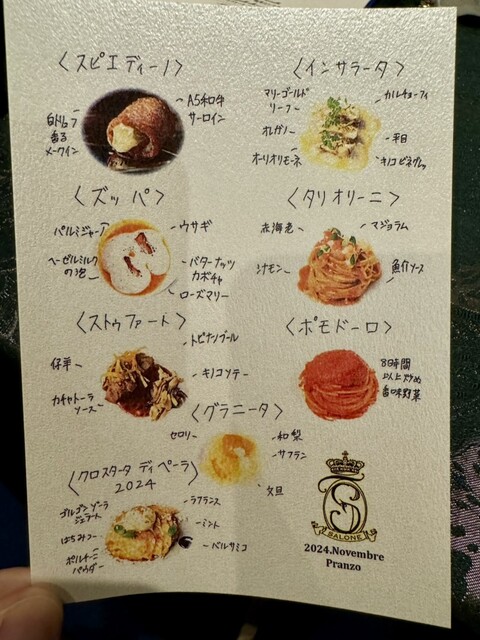 〈スピエディーノ〉
A5和牛
サーロイン
白トリュフ
香る
メークイン
〈インサラータ〉
マリーゴールド
リーフ
カルチョーフィ
オレガノ
オーリオリモーネ
キノコビネグレ
〈ズッパ〉
パルミジャーノ
ウサギ
ヘーゼルミルク
の泡
バターナッツ
カボチャ
ローズマリー
〈タリオリーニ〉
赤海老
マジョラム
シナモン
魚介ソース
〈ストゥファート〉
トピナンブール
仔羊
キノコソテー
カチャトーラ
ソース
〈ポモドーロ〉
8時間
以上炒め
香味野菜
〈グラニータ〉
セロリ
和梨
サフラン
文旦
〈クロスタータ ディペーラ〉
2024
ゴルゴンゾーラ
ジェラート
ラフランス
はちみつ
ミント
ポルチーニ
パウダー
バルサミコ
SALONE
2024.Novembre
Pranzo